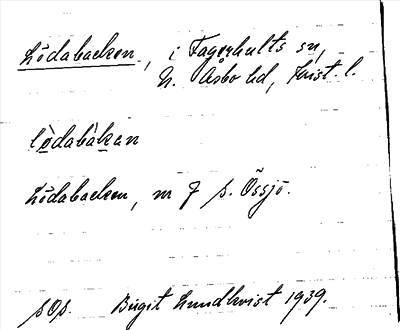 Lödabacken, i Fagerhults sn,
N. Åsbo hd, Krist. l.
lö̀dabàkan
Lödabacken, m 7 s. Össjö.
sOs. Birgit Lundkvist 1939.